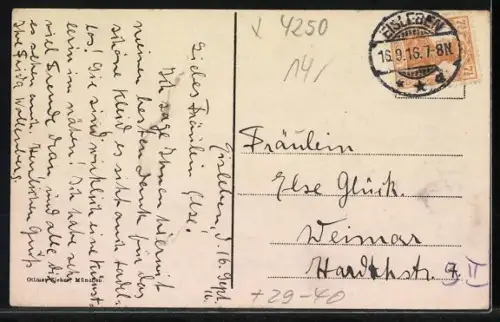 x 4250
14/
EISLEBEN
16.9.16.7-8N.
* * a
Eisleben, d. 16. Sept. 16.
Liebes Fräulein Else!
Ich sage Ihnen hiermit
meinen besten Dank für das
schöne Kleid es sitzt auch tadel-
los! Sie sind wirklich eine Künst-
lerin im nähen! Ich habe sehr
viel Freude dran, und alle die
es sehen auch. Herzlichen Gruß
Ihre Frida
Fräulein
Else Glück.
Weimar
II
+29-40
München.